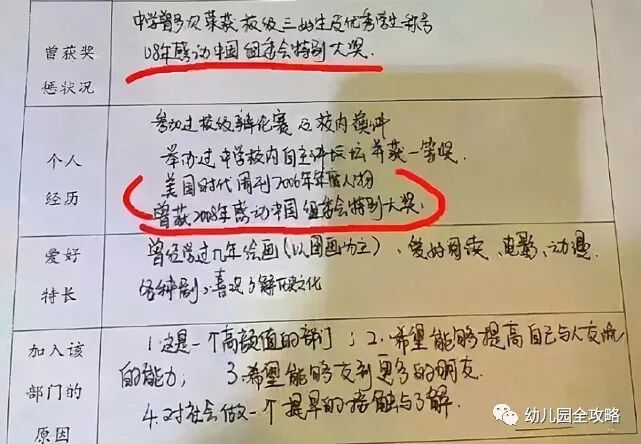 曾获奖
惩状况
中学曾多次荣获校级三好生及优秀学生称号
08年感动中国组委会特别大奖.
个人
经历
参加过校级辩论赛及校内演讲
举办过中学校内自主讲坛并获一等奖.
美国时代周刊2006年年度人物
曾获2008年感动中国组委会特别大奖.
爱好
特长
曾经学过几年绘画(以国画为主)、爱好阅读、电影、动漫.
各种剧,喜欢了解历史文化
加入该
部门的
原因
1.这是一个高颜值的部门;2.希望能够提高自己与人交流
的能力;3.希望能够交到更多的朋友.
4.对社会做一个提早的接触与了解.
幼儿园全攻略